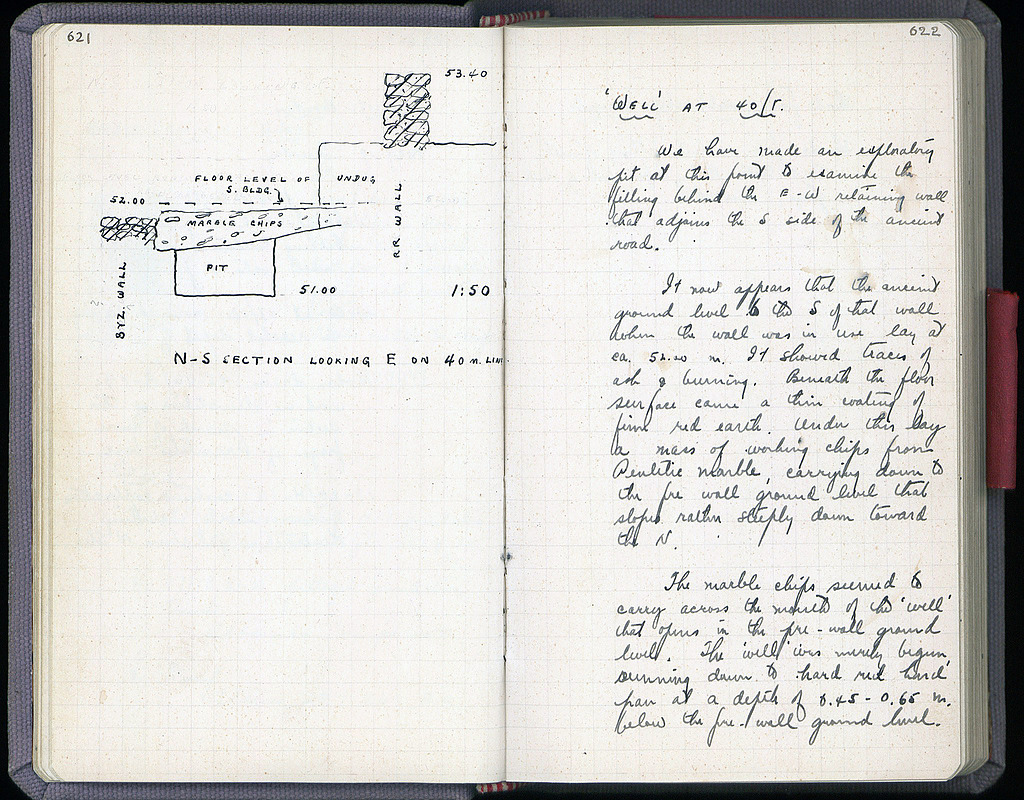 621
53.40
FLOOR LEVEL OF UNDUG
S. BLDG.
52.00
MARBLE CHIPS
R.R. WALL
PIT
BYZ. WALL
51.00 1:50
N-S SECTION LOOKING E ON 40 M. LINE
622
'WELL' AT 40/Γ.
We have made an exploratory
pit at this point to examine the
filling behind the E-W retaining wall
that adjoins the S side of the ancient
road.
It now appears that the ancient
ground level to the S of that wall
when the wall was in use lay at
ca. 52.20 m. It showed traces of
ash & burning. Beneath the floor
surface came a thin coating of
firm red earth. Under this lay
a mass of working chips from
Pentelic marble, carrying down to
the pre wall ground level that
slopes rather steeply down toward
the N.
The marble chips seemed to
carry across the mouth of the 'well'
that opens in the pre-wall ground
level. The 'well' was merely begun,
running down to hard red hard
pan at a depth of 0.45-0.65 m.
below the pre-wall ground level.